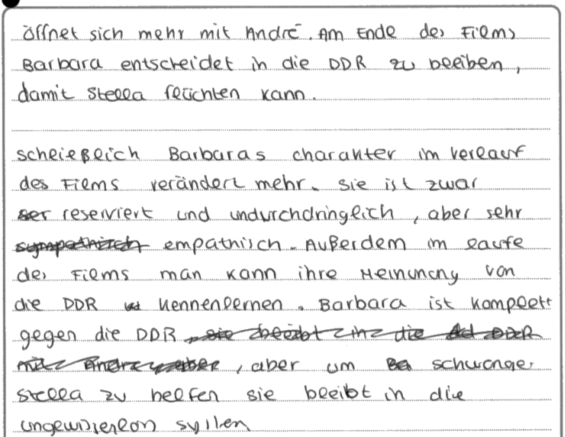 öffnet sich mehr mit André. Am Ende des Films
Barbara entscheidet in die DDR zu bleiben,
damit Stella flüchten kann.
schließlich Barbaras charakter im verlauf
des Films verändert mehr. Sie ist zwar
reserviert und undurchdringlich, aber sehr
empathisch. Außerdem im laufe
des Films man kann ihre Meinung von
die DDR kennenlernen. Barbara ist komplett
gegen die DDR, aber um schwanger
Stella zu helfen sie bleibt in die